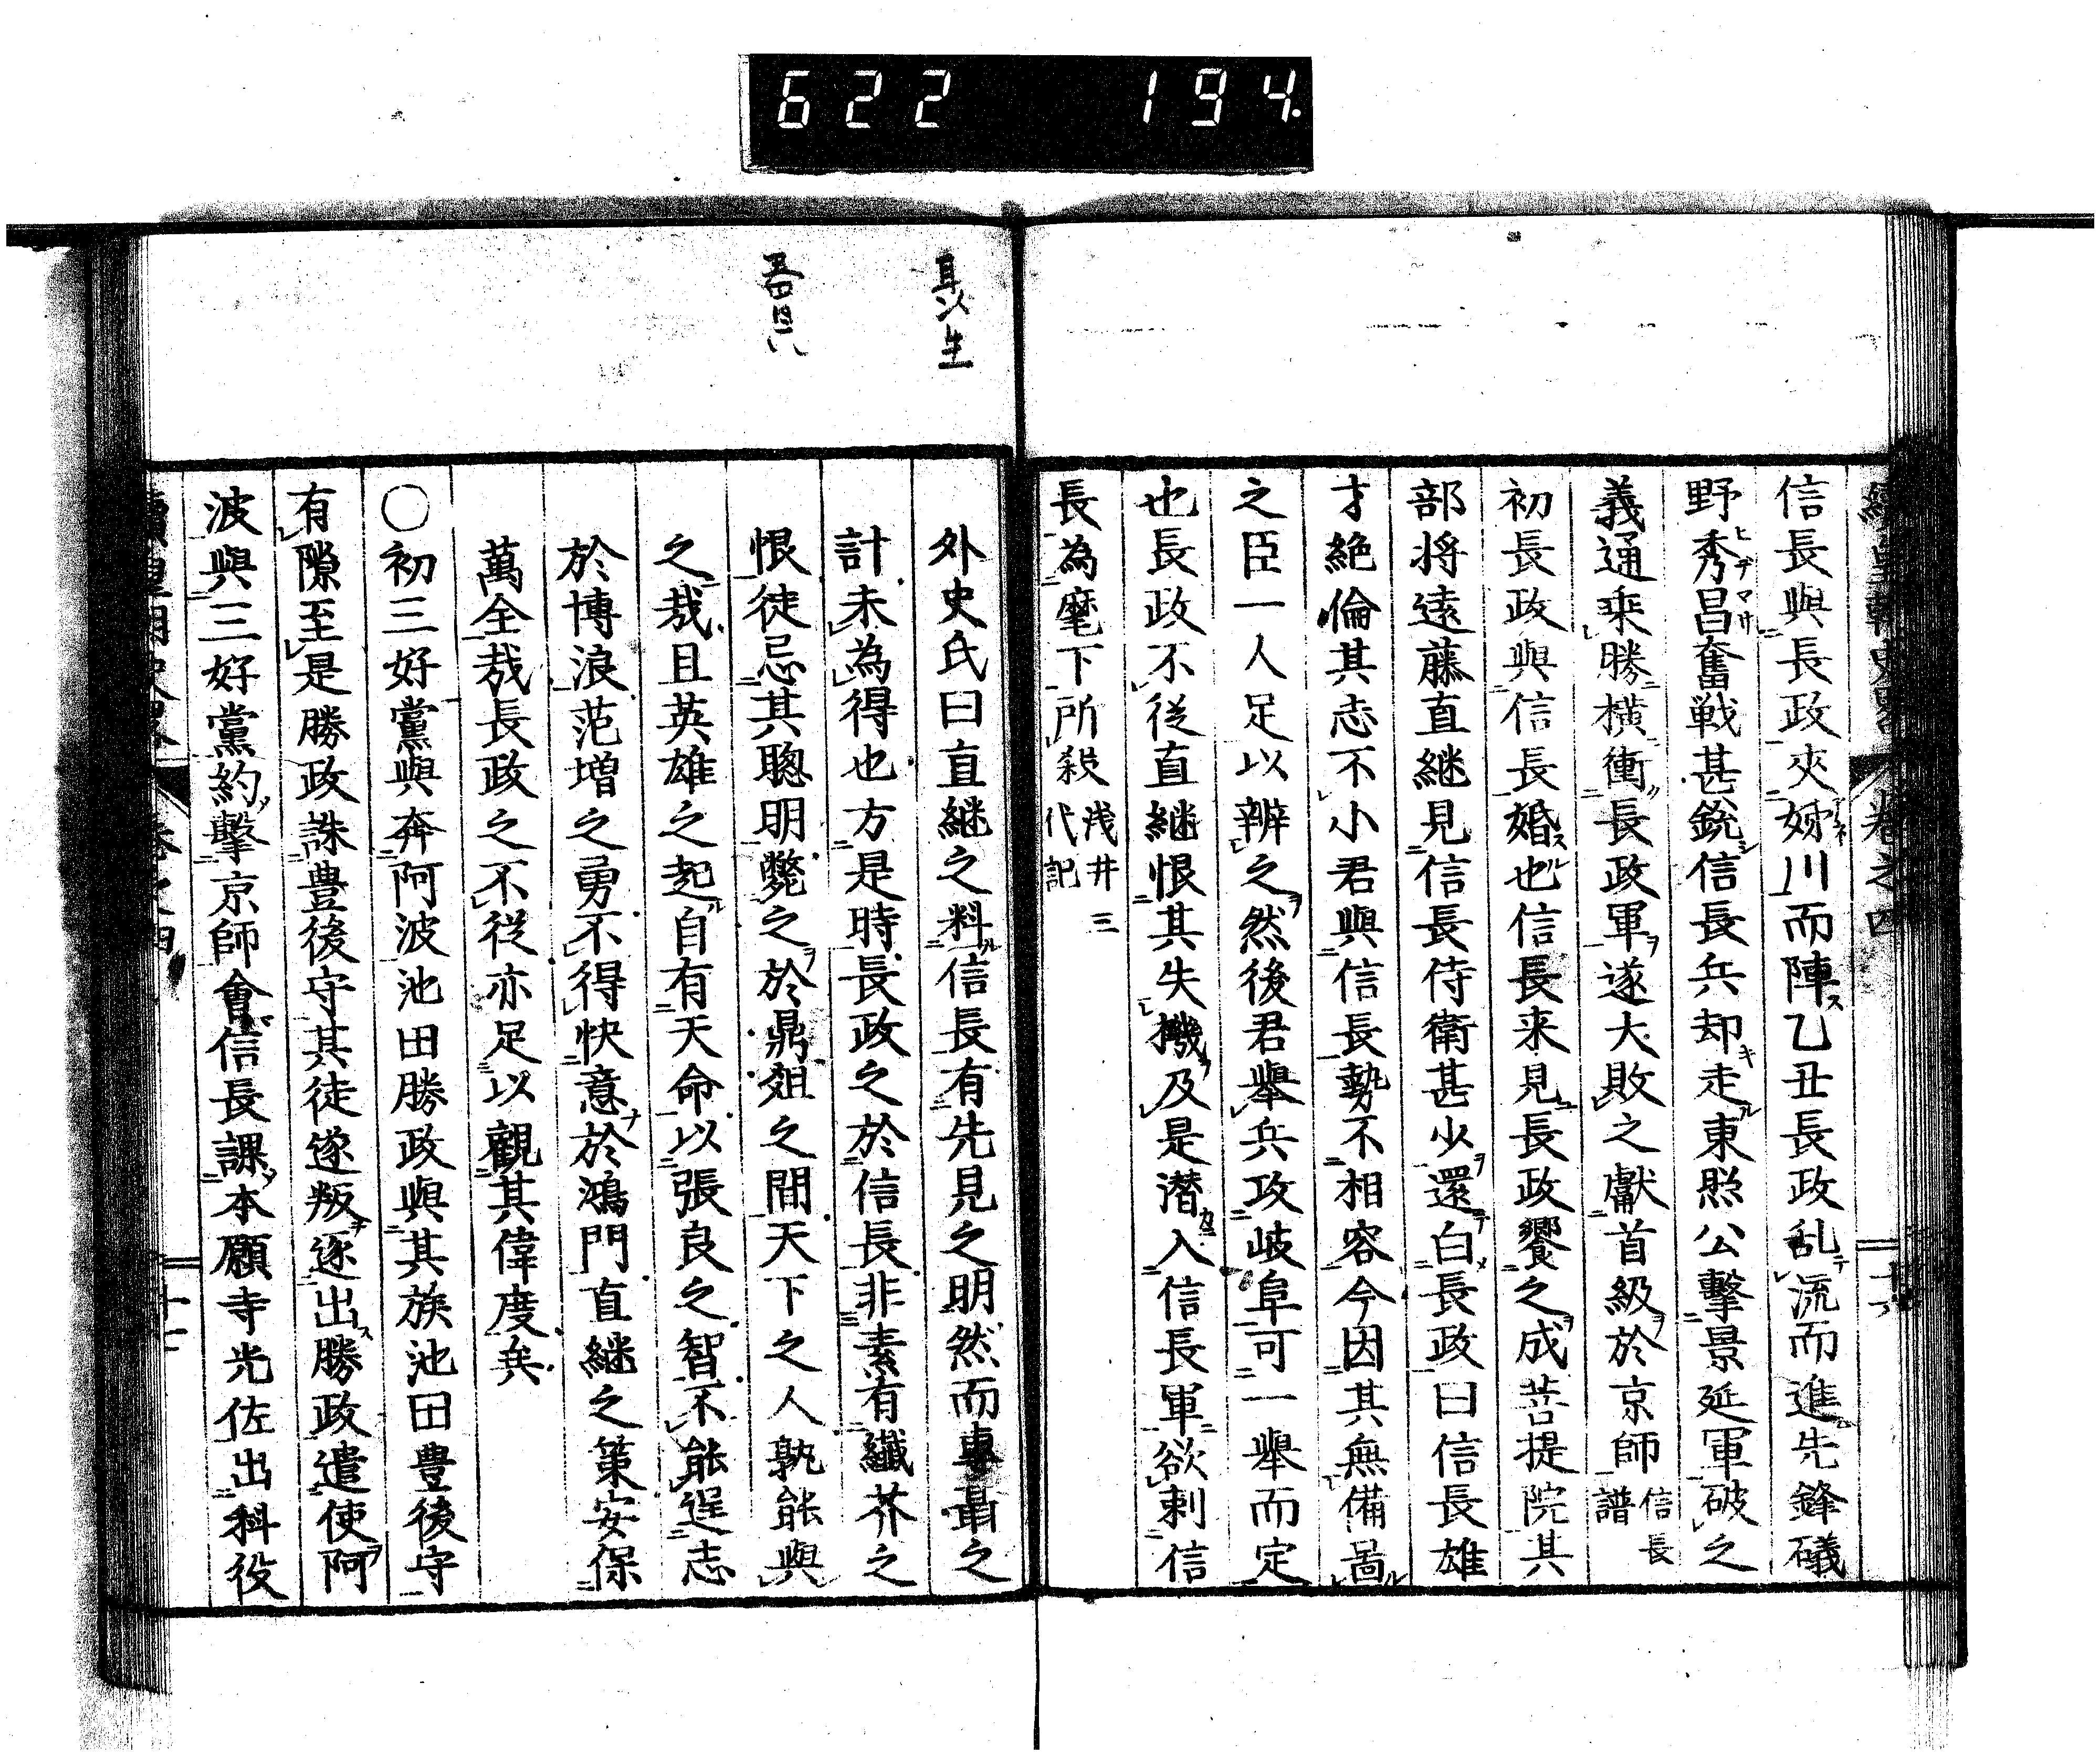 622 194.
信長與長政夾姊川而陣乙丑長政乱流而進先鋒礒
野秀昌奮戦甚銳信長兵却走東照公擊景延軍破之
義通乗勝横衝長政軍遂大敗之獻首級於京師信長譜
初長政與信長婚也信長来見長政饗之成菩提院其
部将遠藤直継見信長侍衛甚少還白長政曰信長雄
才絶倫其志不小君與信長勢不相容今因其無備啚
之臣一人足以辨之然後君舉兵攻岐阜可一舉而定
也長政不従直継恨其失機及是潜入信長軍欲刺信
長為麾下所殺浅井三代記
外史氏曰直継之料信長有先見之明然而專聶之
計未為得也方是時長政之於信長非素有纎芥之
恨徒忌其聰明斃之於鼎俎之間天下之人孰能與
之哉且英雄之起自有天命以張良之智不能逞志
於博浪范増之勇不得快意於鴻門直継之策安保
萬全哉長政之不従亦足以觀其偉度矣
〇初三好黨與奔阿波池田勝政與其族池田豊後守
有隙至是勝政誅豊後守其徒遂叛逐出勝政遣使阿
波與三好黨約擊京師會信長課本願寺光佐出科役